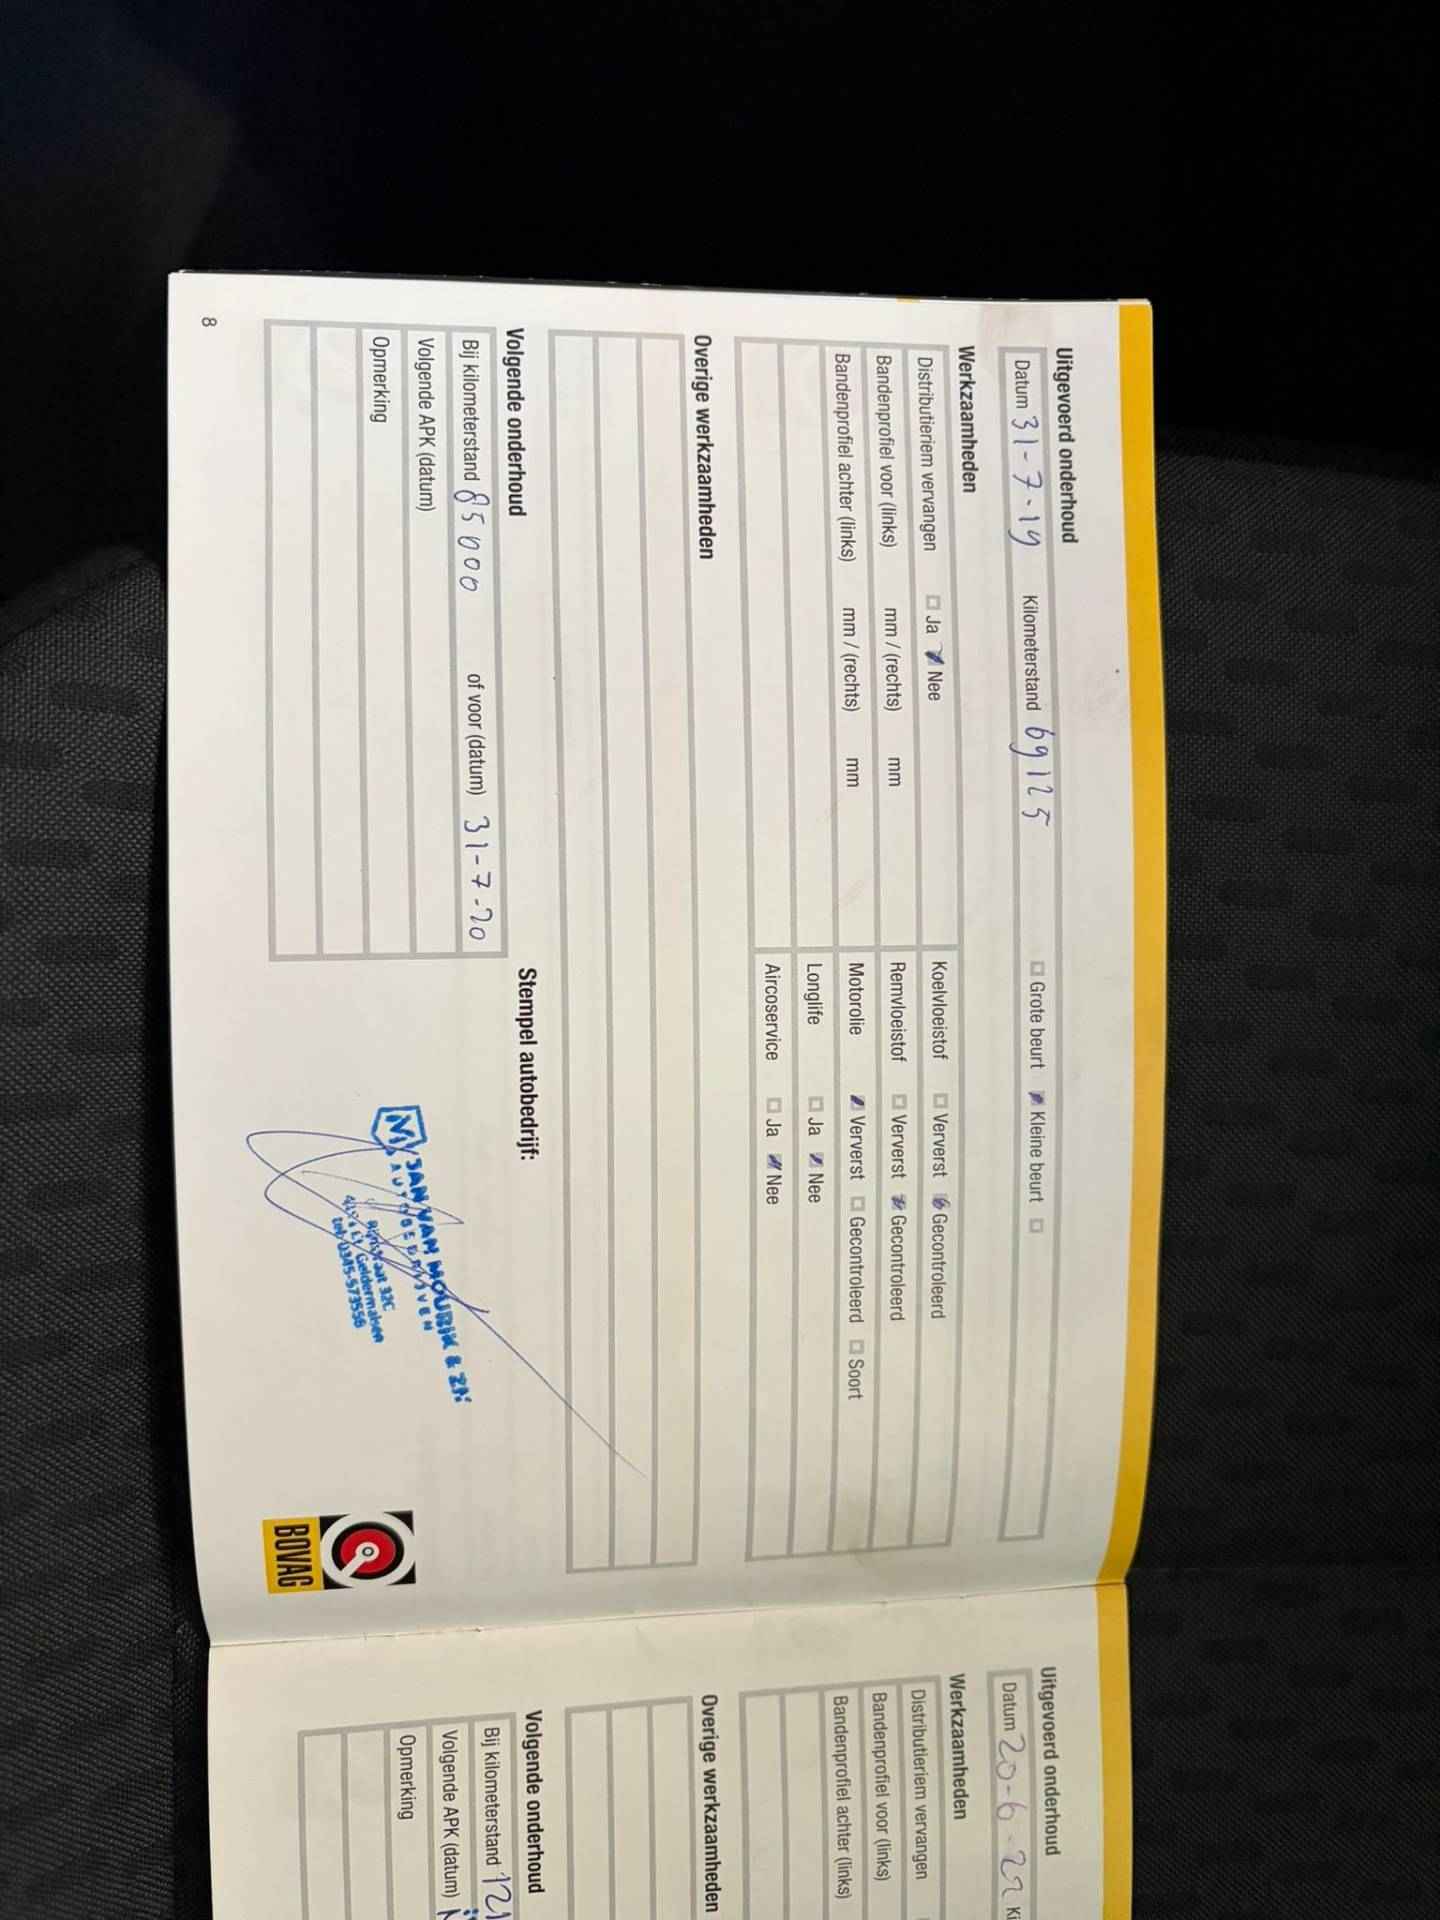 Uitgevoerd onderhoud
Datum 31-7-19 Kilometerstand 69125 Grote beurt Kleine beurt
Werkzaamheden
Distributieriem vervangen Ja Nee Koelvloeistof Ververst Gecontroleerd
Bandenprofiel voor (links) mm / (rechts) mm Remvloeistof Ververst Gecontroleerd
Bandenprofiel achter (links) mm / (rechts) mm Motorolie Ververst Gecontroleerd Soort
Longlife Ja Nee
Aircoservice Ja Nee
Overige werkzaamheden
Volgende onderhoud
Stempel autobedrijf:
Bij kilometerstand 85000 of voor (datum) 31-7-20
Volgende APK (datum)
Opmerking
JAN VAN MOURIK & ZN
AUTOBEDRIJVEN
Rijnstraat 32C
Geldermalsen
tel. 0345-573556
BOVAG
8
Uitgevoerd onderhoud
Datum 20-6-22 Ki
Werkzaamheden
Distributieriem vervangen
Bandenprofiel voor (links)
Bandenprofiel achter (links)
Overige werkzaamheden
Volgende onderhoud
Bij kilometerstand 121
Volgende APK (datum)
Opmerking